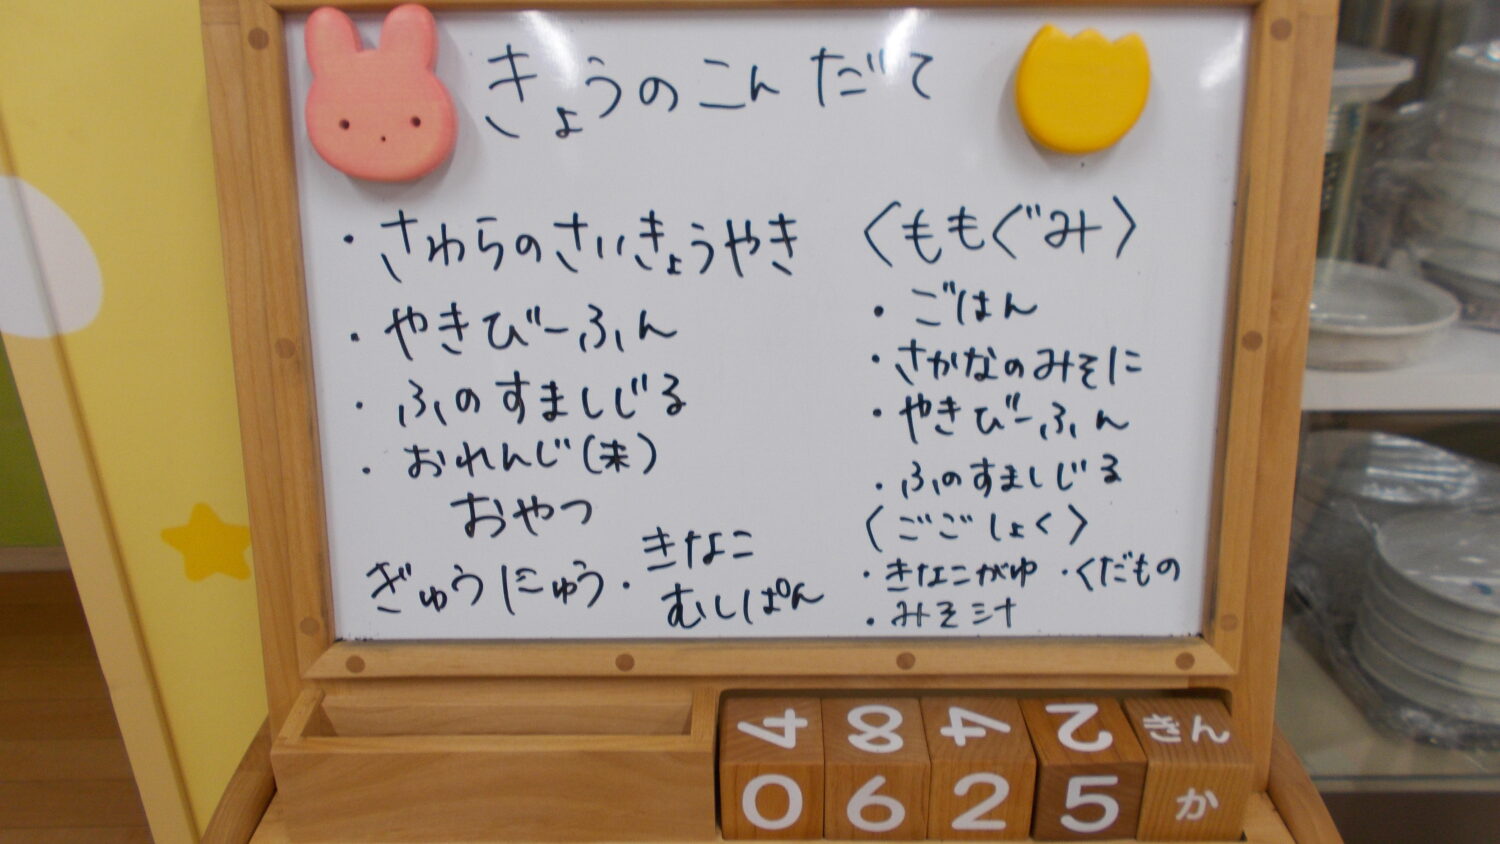 きょうのこんだて
・さわらのさいきょうやき
・やきびーふん
・ふのすましじる
・おれんじ(末)
おやつ
ぎゅうにゅう・きなこ
むしぱん
〈ももぐみ〉
・ごはん
・さかなのみそに
・やきびーふん
・ふのすましじる
〈ごごしょく〉
・きなこがゆ ・くだもの
・みそ汁
4 8 4 2 きん
0 6 2 5 か